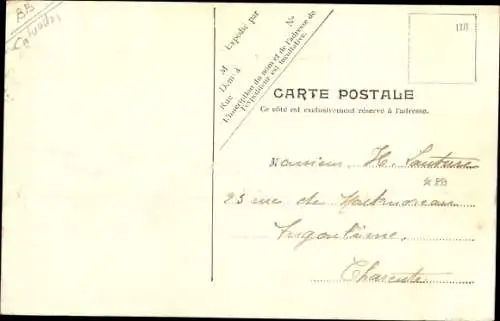 BB
Calvados
Nº
Expédié par
M
Dem^t à
Rue
L'inscription du nom et de l'adresse de
l'expéditeur est facultative.
CARTE POSTALE
Ce côté est exclusivement réservé à l'adresse.
Monsieur H.
23 rue de
Angoulême.
Charente